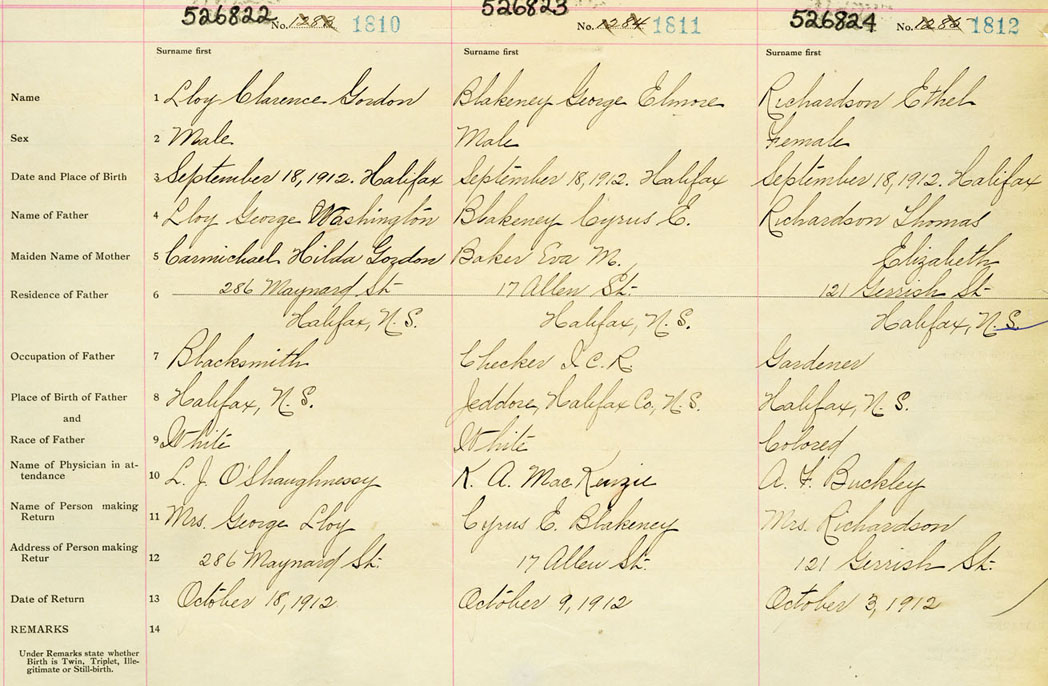 526822 No. 1283 1810 526823 No. 1284 1811 526824 No. 1285 1812
Surname first Surname first Surname first
Name 1 Lloy Clarence Gordon Blakeney George Elmore Richardson Ethel
Sex 2 Male Male Female
Date and Place of Birth 3 September 18, 1912. Halifax September 18, 1912. Halifax September 18, 1912. Halifax
Name of Father 4 Lloy George Washington Blakeney Cyrus E. Richardson Thomas
Maiden Name of Mother 5 Carmichael Hilda Gordon Baker Eva M. Elizabeth
286 Maynard St. 17 Allen St. 121 Gerrish St
Residence of Father 6
Halifax, N.S. Halifax, N.S. Halifax, N.S.
Occupation of Father 7 Blacksmith Checker I.C.R. Gardener
Place of Birth of Father 8 Halifax, N.S. Jeddore, Halifax Co, N.S. Halifax, N.S.
and
Race of Father 9 White White Colored
Name of Physician in at-
tendance 10 L. J. O'Shaughnessy K. A. MacKenzie A. F. Buckley
Name of Person making
Return 11 Mrs. George Lloy Cyrus E. Blakeney Mrs. Richardson
Address of Person making
Retur 12 286 Maynard St. 17 Allen St. 121 Gerrish St.
Date of Return 13 October 18, 1912 October 9, 1912 October 3, 1912
REMARKS 14
Under Remarks state whether
Birth is Twin, Triplet, Ille-
gitimate or Still-birth.